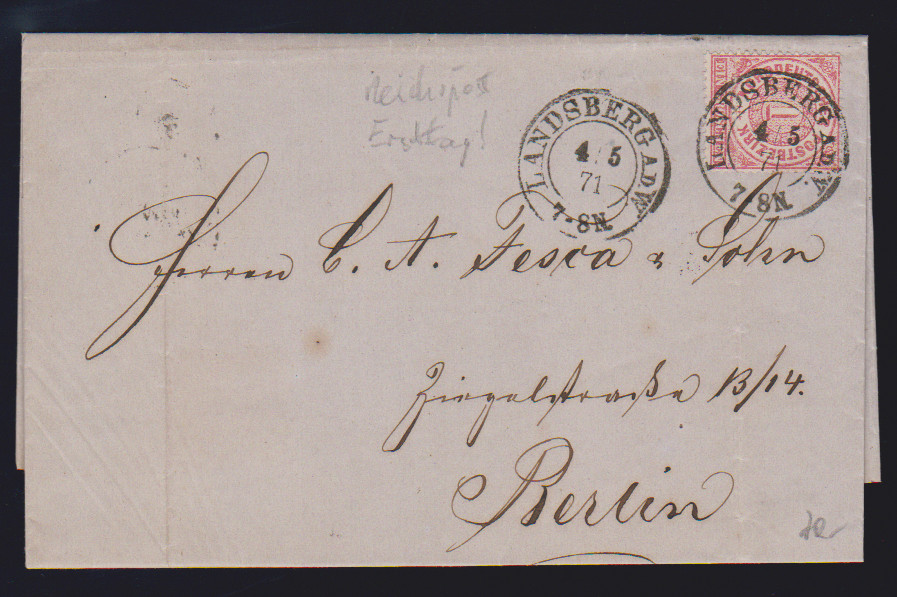 Reichspost
Ersttag!
LANDSBERG A.D.W.
4 5
71
7-8N.
NORDDEUTSCHER POSTBEZIRK
1
LANDSBERG A.D.W.
4 5
71
7-8N.
Herren C. A. Fesca & Sohn
Ziegelstraße 13/14.
Berlin